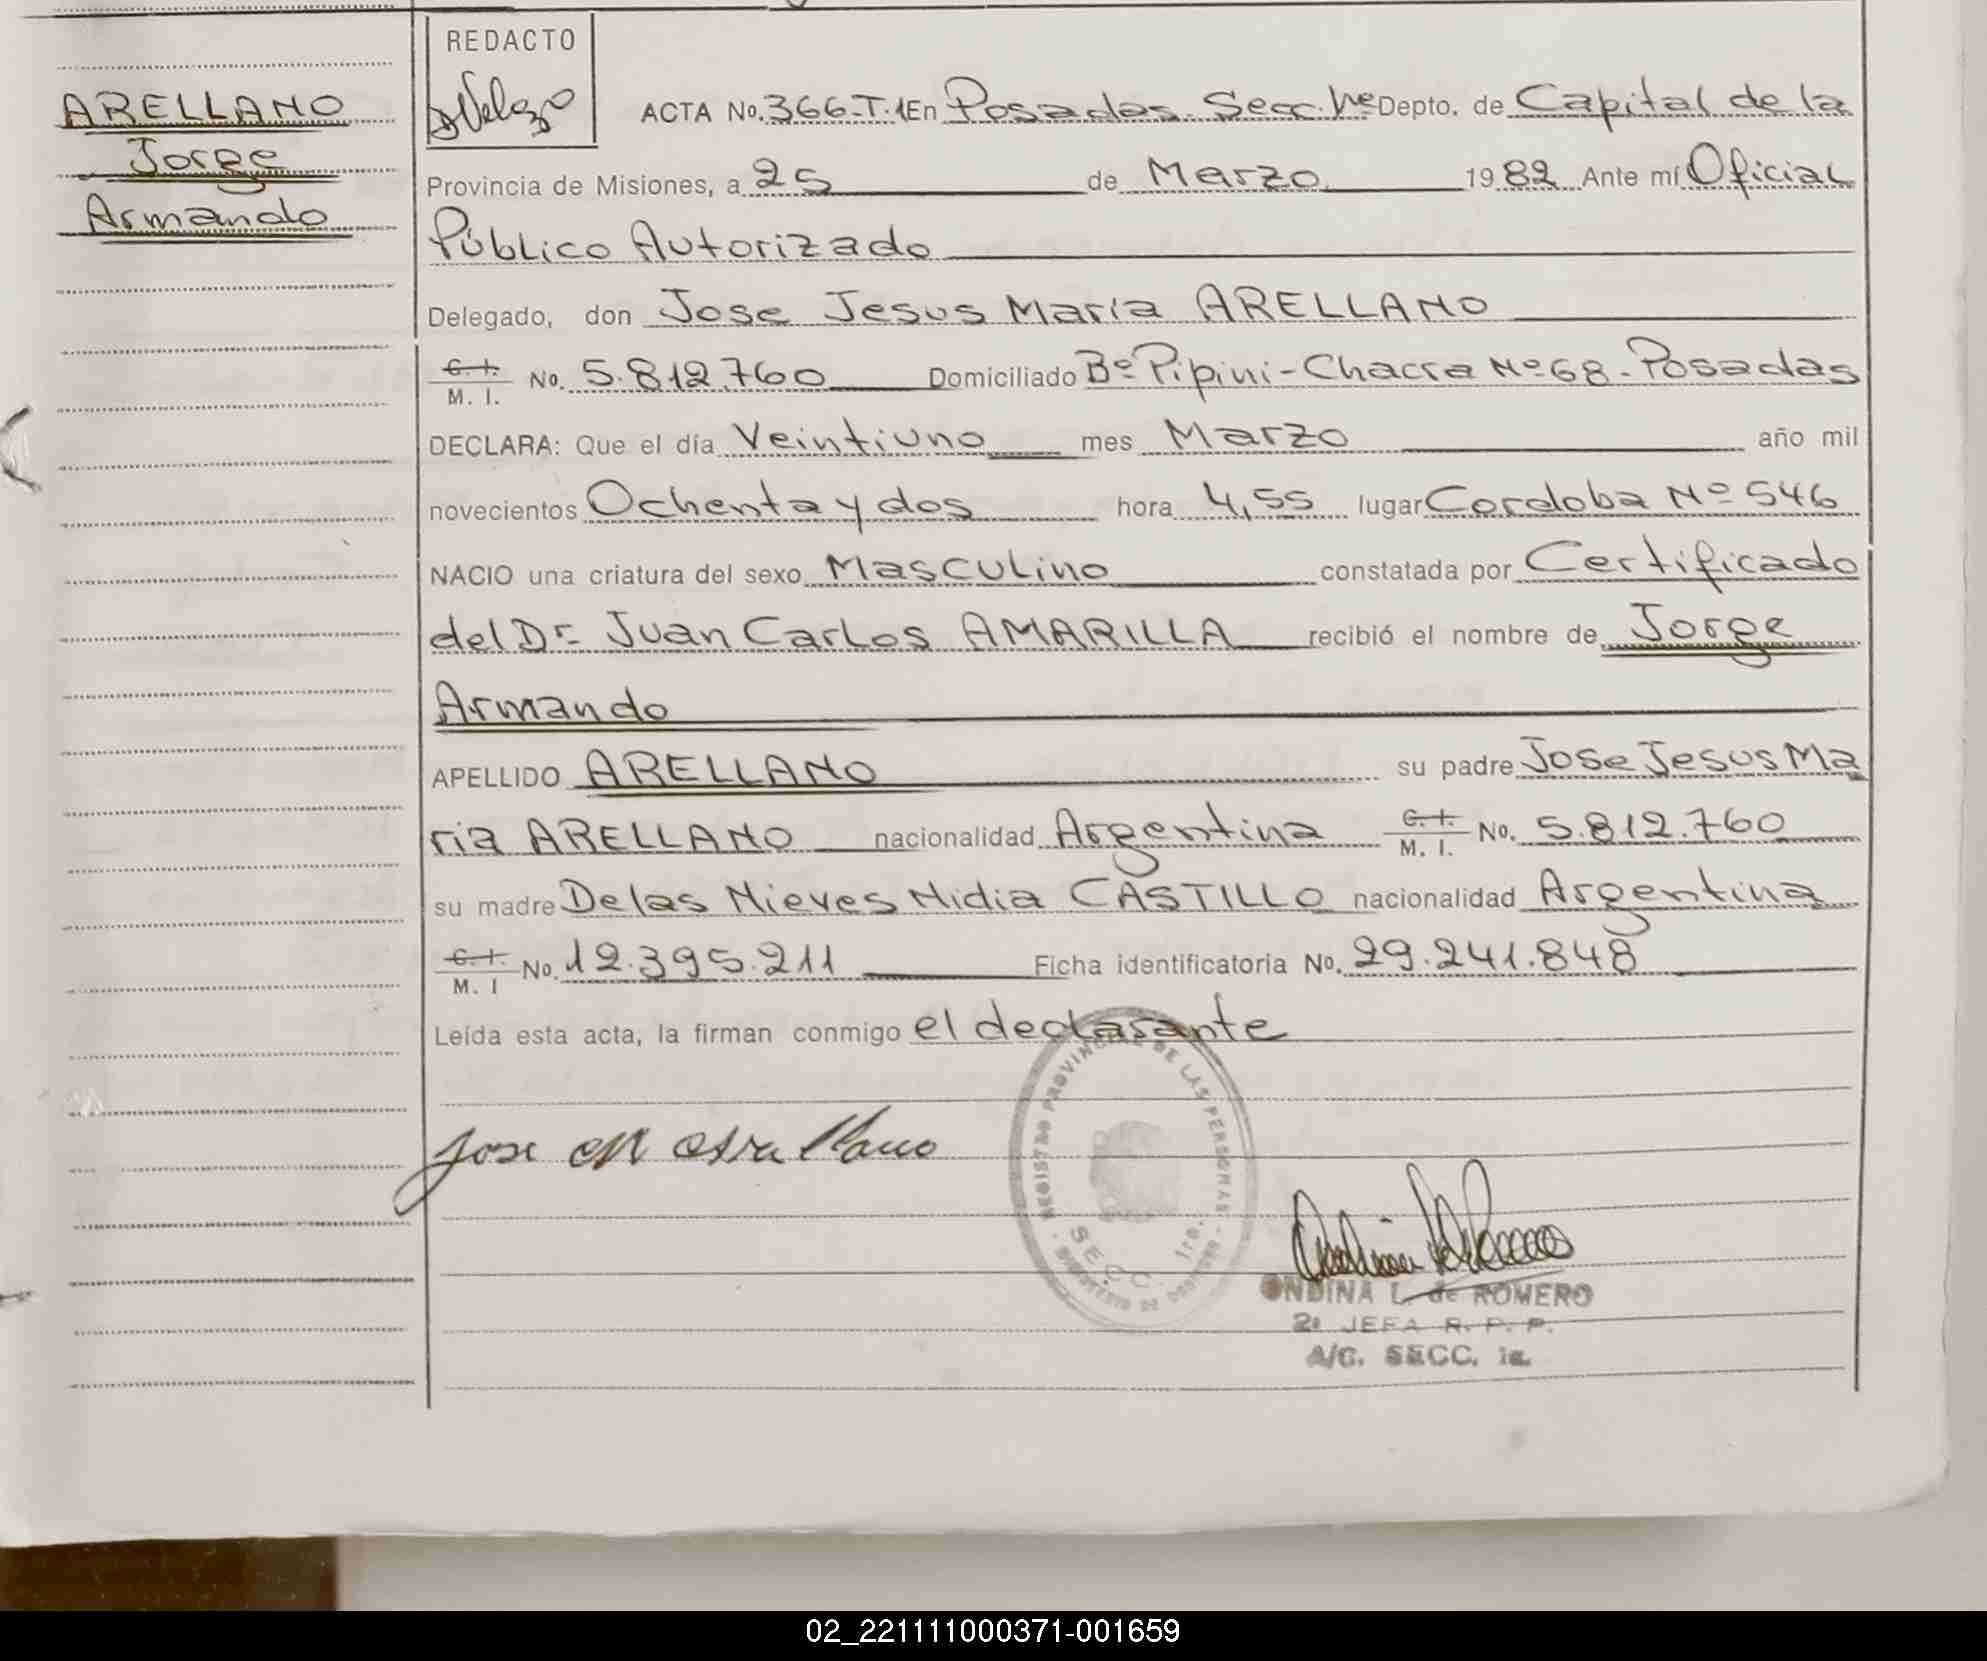 ARELLANO
Jorge
Armando
REDACTO
ACTA No. 366-T.1 En Posadas. Secc. 1ra Depto. de Capital de la
Provincia de Misiones, a 25 de Marzo 1982 Ante mí Oficial
Público Autorizado
Delegado, don Jose Jesus María ARELLANO
C. I. / M. I. No. 5.812.760 Domiciliado Bº Pipini-Chacra Nº 68-Posadas
DECLARA: Que el día Veintiuno mes Marzo año mil
novecientos Ochenta y dos hora 4,55 lugar Cordoba Nº 546
NACIO una criatura del sexo Masculino constatada por Certificado
del Dr. Juan Carlos AMARILLA recibió el nombre de Jorge
Armando
APELLIDO ARELLANO su padre Jose Jesus Ma
ria ARELLANO nacionalidad Argentina C. I. / M. I. No. 5.812.760
su madre De las Nieves Nidia CASTILLO nacionalidad Argentina
C. I. / M. I No. 12.395.211 Ficha identificatoria No. 29.241.848
Leída esta acta, la firman conmigo el declarante
REGISTRO PROVINCIAL DE LAS PERSONAS
SECC. 1ra.
Jose M Arellano
ONDINA L. de ROMERO
2ª JEFA R. P. P.
A/C. SECC. 1a.
02_221111000371-001659